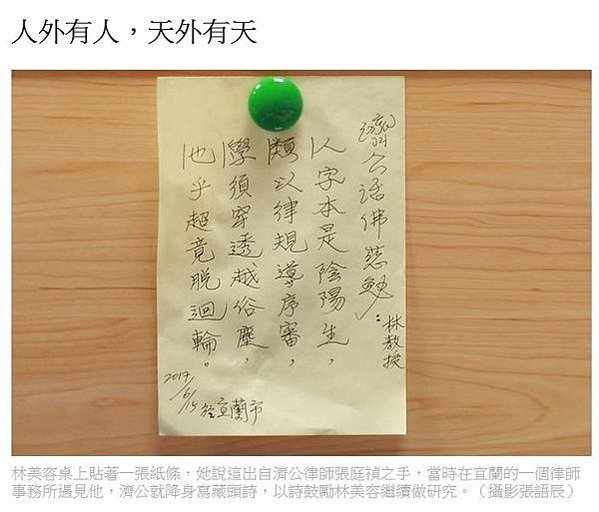 人外有人，天外有天
濟公活佛慈勉：
林教授
人字本是陰陽生，
類以律規導序審，
學須穿透越俗塵，
也乎超竟脫迴輪。
2017/6/15 於宜蘭市
林美容桌上貼著一張紙條，她說這出自濟公律師張庭禎之手，當時在宜蘭的一個律師
事務所遇見他，濟公就降身寫藏頭詩，以詩鼓勵林美容繼續做研究。（攝影張語辰）